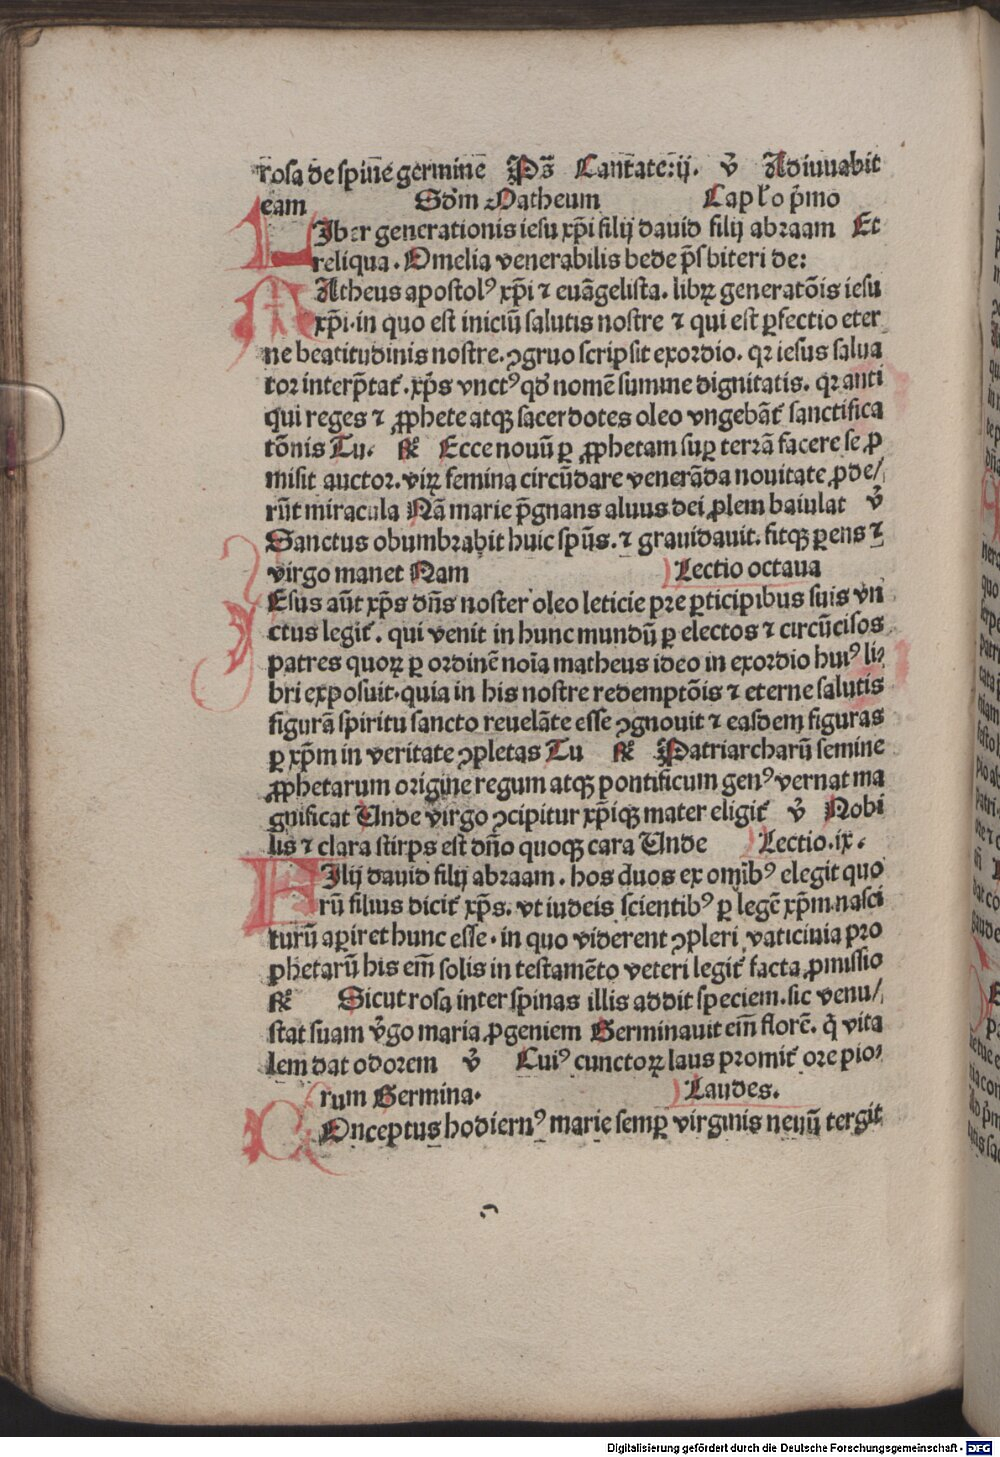 rosa de spine germine Ps Cantate:ij. v̄ Adiuuabit
eam Scd̄m Matheum Capl̄o p̄mo
LIber generationis iesu xp̄i filij dauid filij abraam Et
reliqua. Omelia venerabilis bede p̄sbiteri de:
MAtheus apostolꝰ xp̄i ⁊ euāgelista. libꝝ generatōis iesu
xp̄i. in quo est iniciū salutis nostre ⁊ qui est ꝑfectio eter
ne beatitudinis nostre. ꝯgruo scripsit exordio. qꝛ iesus salua
tor interp̄tat᷑. xp̄s vnctꝰ qd̄ nomē summe dignitatis. qꝛ anti
qui reges ⁊ ꝓphete atqꝫ sacerdotes oleo vngebāt᷑ sanctifica
tōnis Tu. ℟ Ecce nouū ꝑ ꝓphetam suꝑ terrā facere se ꝓ
misit auctor. viꝝ femina circūdare venerāda nouitate ꝓde/
rūt miracula Nā marie p̄gnans aluus dei ꝓlem baiulat v̄
Sanctus obumbrabit huic spūs. ⁊ grauidauit. fitqꝫ ꝑens ⁊
virgo manet Nam Lectio octaua
IEsus aūt xp̄s dn̄s noster oleo leticie pre ꝑticipibus suis vn
ctus legit᷑. qui venit in hunc mundū ꝑ electos ⁊ circūcisos
patres quoꝝ ꝑ ordinē noīa matheus ideo in exordio huiꝰ li/
bri exposuit. quia in his nostre redemptōis ⁊ eterne salutis
figurā spiritu sancto reuelāte esse ꝯgnouit ⁊ easdem figuras
ꝑ xp̄m in veritate ꝯpletas Tu ℟ Patriarcharū semine
ꝓphetarum origine regum atqꝫ pontificum genꝰ vernat ma
gnificat Unde virgo ꝯcipitur xp̄iqꝫ mater eligit᷑ v̄ Nobi
lis ⁊ clara stirps est dn̄o quoqꝫ cara Unde Lectio. ix.
FIlij dauid filij abraam. hos duos ex om̄ibꝰ elegit quo
rū filius dicit᷑ xp̄s. vt iudeis scientibꝰ ꝑ legē xp̄m nasci
turū aꝑiret hunc esse. in quo viderent ꝯpleri vaticinia pro
phetarū his em̄ solis in testamēto veteri legit᷑ facta ꝓmissio
℟ Sicut rosa inter spinas illis addit speciem. sic venu/
stat suam v̄go maria ꝓgeniem Germinauit em̄ florē. q̄ vita
lem dat odorem v̄ Cuiꝰ cunctoꝝ laus promit᷑ ore pio/
rum Germina. Laudes.
COnceptus hodiernꝰ marie semꝑ virginis neuū tergit
Digitalisierung gefördert durch die Deutsche Forschungsgemeinschaft - DFG